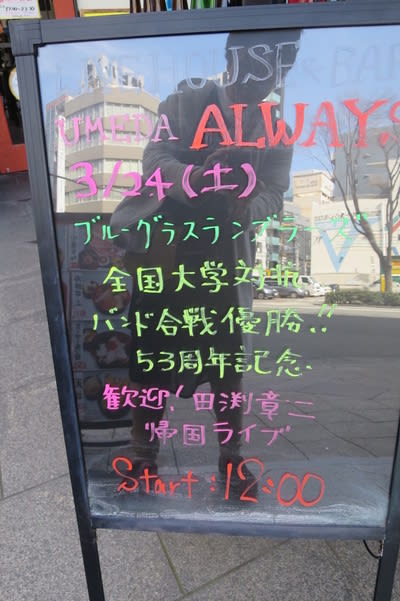 LIVE HOUSE & BAR
UMEDA ALWAYS
3/24(土)
ブルーグラスランブラーズ
全国大学対抗
バンド合戦優勝!!
53周年記念.
歓迎!田渕章二
帰国ライブ
Start:12:00